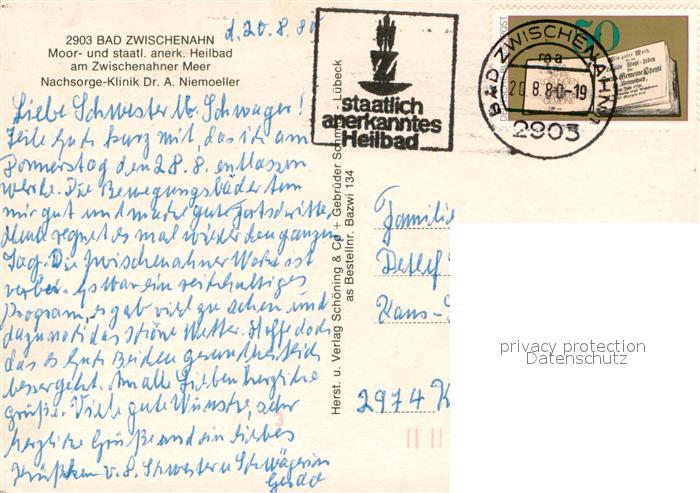 d. 20.8.80
2903 BAD ZWISCHENAHN
Moor- und staatl. anerk. Heilbad
am Zwischenahner Meer
Nachsorge-Klinik Dr. A. Niemoeller
Liebe Schwester u. Schwager!
Teile Euch kurz mit, das ich am
Donnerstag den 28.8. entlassen
werde. Die Bewegungsbäder tun
mir gut und mache gute Fortschritte.
Heute regnet es mal wieder den ganzen
Tag. Die Zwischenahner Woche ist
vorbei. Es war ein reichhaltiges
Program, es gab viel zu sehen und
dazu noch das schöne Wetter. Hoffe doch
das es Euch Beiden gesundheitlich
besser geht. An alle Lieben herzliche
Grüße. Viele gute Wünsche, sehr
herzliche Grüße und ein liebes
v. d. Schwester u Schwägerin
Gerda
staatlich
anerkanntes
Heilbad
BAD ZWISCHENAHN
ma
20.8.80-19
2903
50
Herst. u. Verlag Schöning & Co + Gebrüder Schmidt-Lübeck
as Bestellnr. Bazwi 134
Familie
Detlef
Hans-
2974 K
privacy protection
Datenschutz